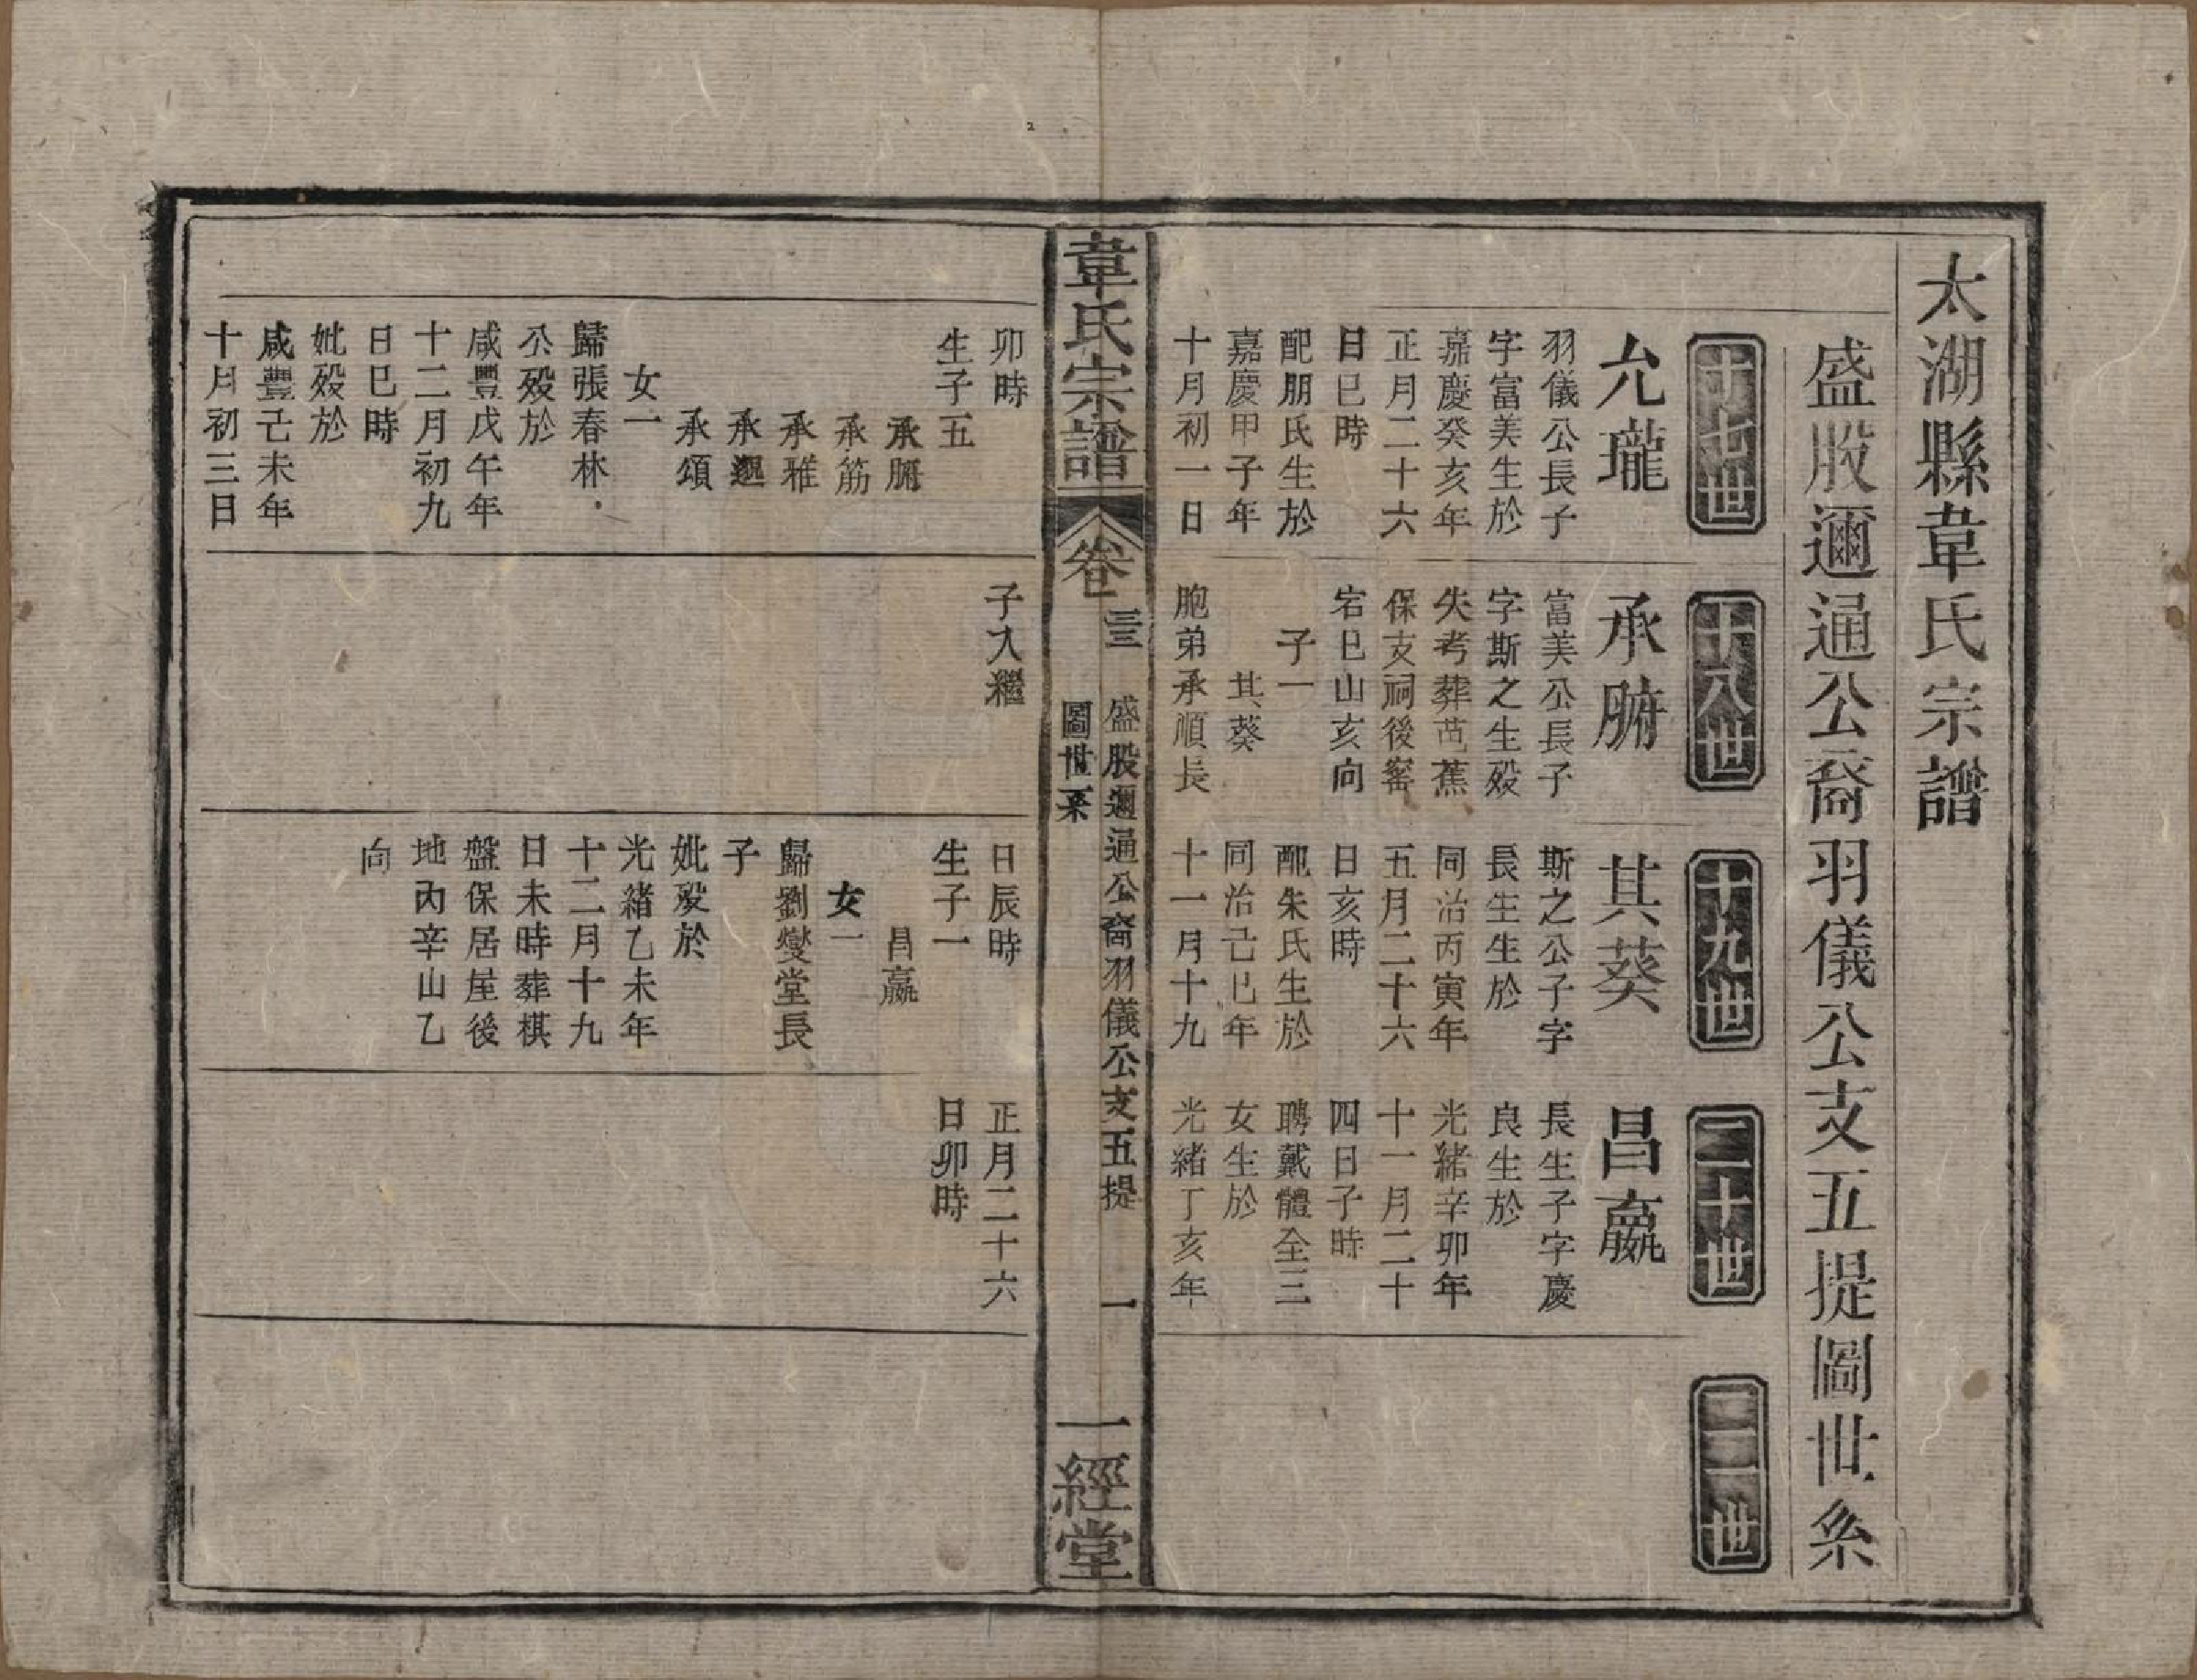 太湖縣韋氏宗譜
盛股邇通公裔羽儀公支五提圖世系
十七世
允瓏
羽儀公長子
字富美生於
嘉慶癸亥年
正月二十六
日巳時
配朋氏生於
嘉慶甲子年
十月初一日
十八世
承腑
富美公長子
字斯之生殁
失考葬芭蕉
保支祠後窰
宕巳山亥向
子一
其葵
胞弟承順長
十九世
其葵
斯之公子字
長生生於
同治丙寅年
五月二十六
日亥時
配朱氏生於
同治己巳年
十一月十九
二十世
昌嬴
長生子字慶
良生於
光緒辛卯年
十一月二十
四日子時
聘戴體全三
女生於
光緒丁亥年
二一世
韋氏宗譜
卷三三
盛股邇通公裔羽儀公支五提
圖世系
一
一經堂
卯時
生子五
承腑
承筋
承雅
承
承頌
女一
歸張春林
公殁於
咸豐戊午年
十二月初九
日巳時
妣殁於
咸豐己未年
十月初三日
子入繼
日辰時
生子一
昌嬴
女一
歸劉燮堂長
子
妣殁於
光緒乙未年
十二月十九
日未時葬棋
盤保居屋後
地內辛山乙
向
正月二十六
日卯時